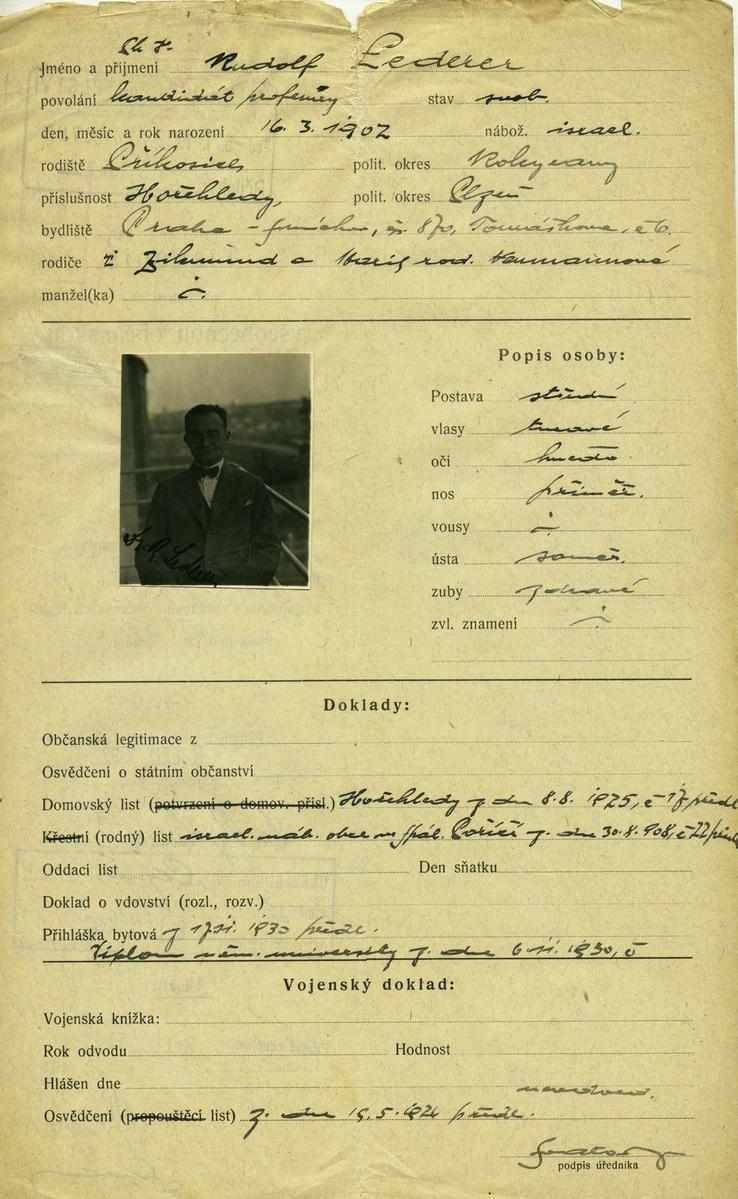 Jméno a příjmení Rudolf Lederer
povolání kandidát profesury stav svob.
den, měsíc a rok narození 16. 3. 1902 nábož. israel.
rodiště Příkosice polit. okres Rokycany
příslušnost Hořehledy, polit. okres Plzeň
bydliště Praha - Smíchov, čp. 870, Tomáškova, č 6.
rodiče Zikmund a Marie roz. Neumannové
manžel(ka)
Popis osoby:
Postava střední
vlasy tmavé
oči hnědé
nos přiměř.
vousy
ústa souměr.
zuby zdravé
zvl. znamení
Dr. R. Lederer
Doklady:
Občanská legitimace z
Osvědčení o státním občanství
Domovský list (potvrzení o domov. přísl.) Hořehledy z dne 8.8. 1925, č 17 předl
Křestní (rodný) list israel. náb. obce ve Spál. Poříčí z. dne 30.8. 908, č 22
Oddací list Den sňatku
Doklad o vdovství (rozl., rozv.)
Přihláška bytová z 17/XI. 1930 předl.
Diplom něm. university z. dne 6.XI. 1930, č
Vojenský doklad:
Vojenská knížka:
Rok odvodu Hodnost
Hlášen dne neodved.
Osvědčení (propouštěcí list) z. dne 19.5. 1924 předl.
podpis úředníka